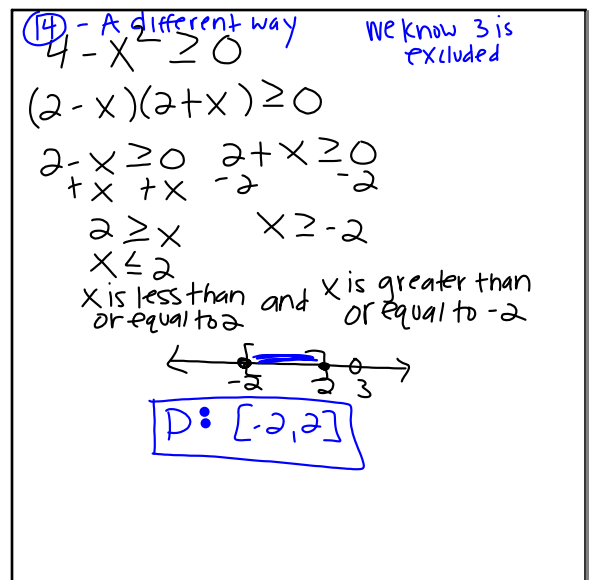 (14) - A different way
We know 3 is
excluded
4 - x² ≥ 0
(2 - x)(2 + x) ≥ 0
2 - x ≥ 0 2 + x ≥ 0
+x +x -2 -2
2 ≥ x x ≥ -2
x ≤ 2
x is less than
or equal to 2
and
x is greater than
or equal to -2
-2 2 3
D: [-2, 2]